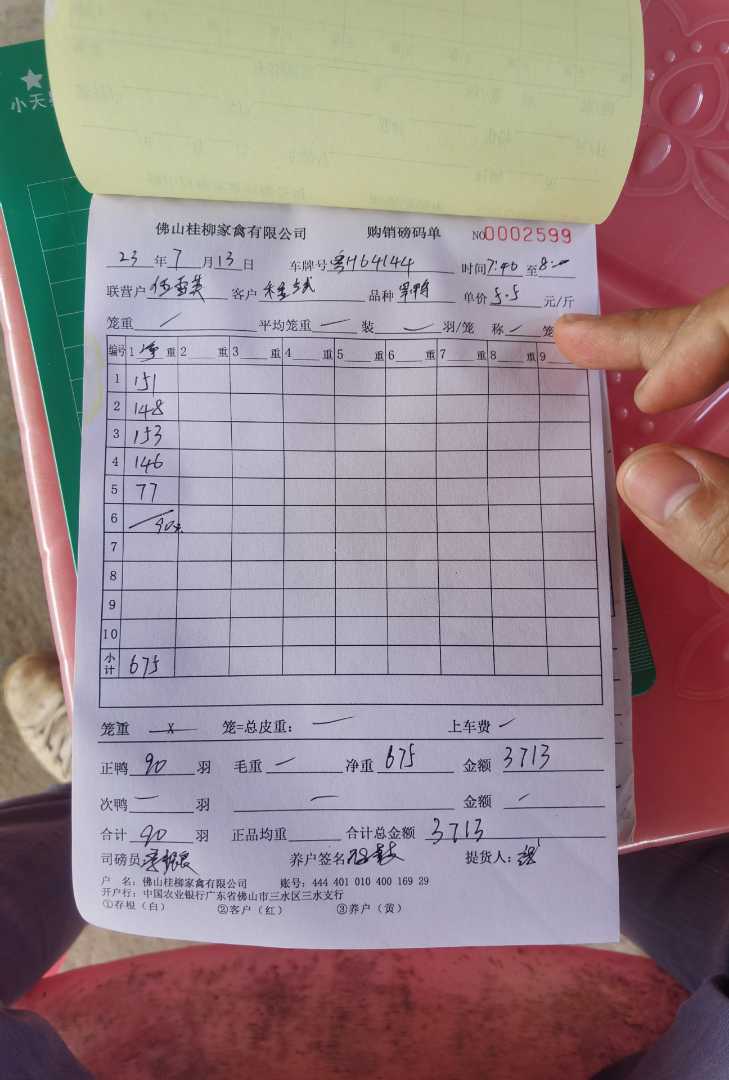 小天
佛山桂柳家禽有限公司 购销磅码单 NO0002599
23年7月13日 车牌号粤H64144 时间7:40至8:
联营户 客户 品种 单价5.5元/斤
笼重 平均笼重 装 羽/笼 称 笼
编号 1净重 2 重 3 重 4 重 5 重 6 重 7 重 8 重 9
1 151
2 148
3 153
4 146
5 77
6 90
7
8
9
10
小计 675
笼重 x 笼=总皮重: 上车费
正鸭90羽 毛重 净重675 金额3713
次鸭 羽 金额
合计90羽 正品均重 合计总金额3713
司磅员 养户签名 提货人:
户 名: 佛山桂柳家禽有限公司 账号: 444 401 010 400 169 29
开户行: 中国农业银行广东省佛山市三水区三水支行
①存根(白) ②客户(红) ③养户(黄)